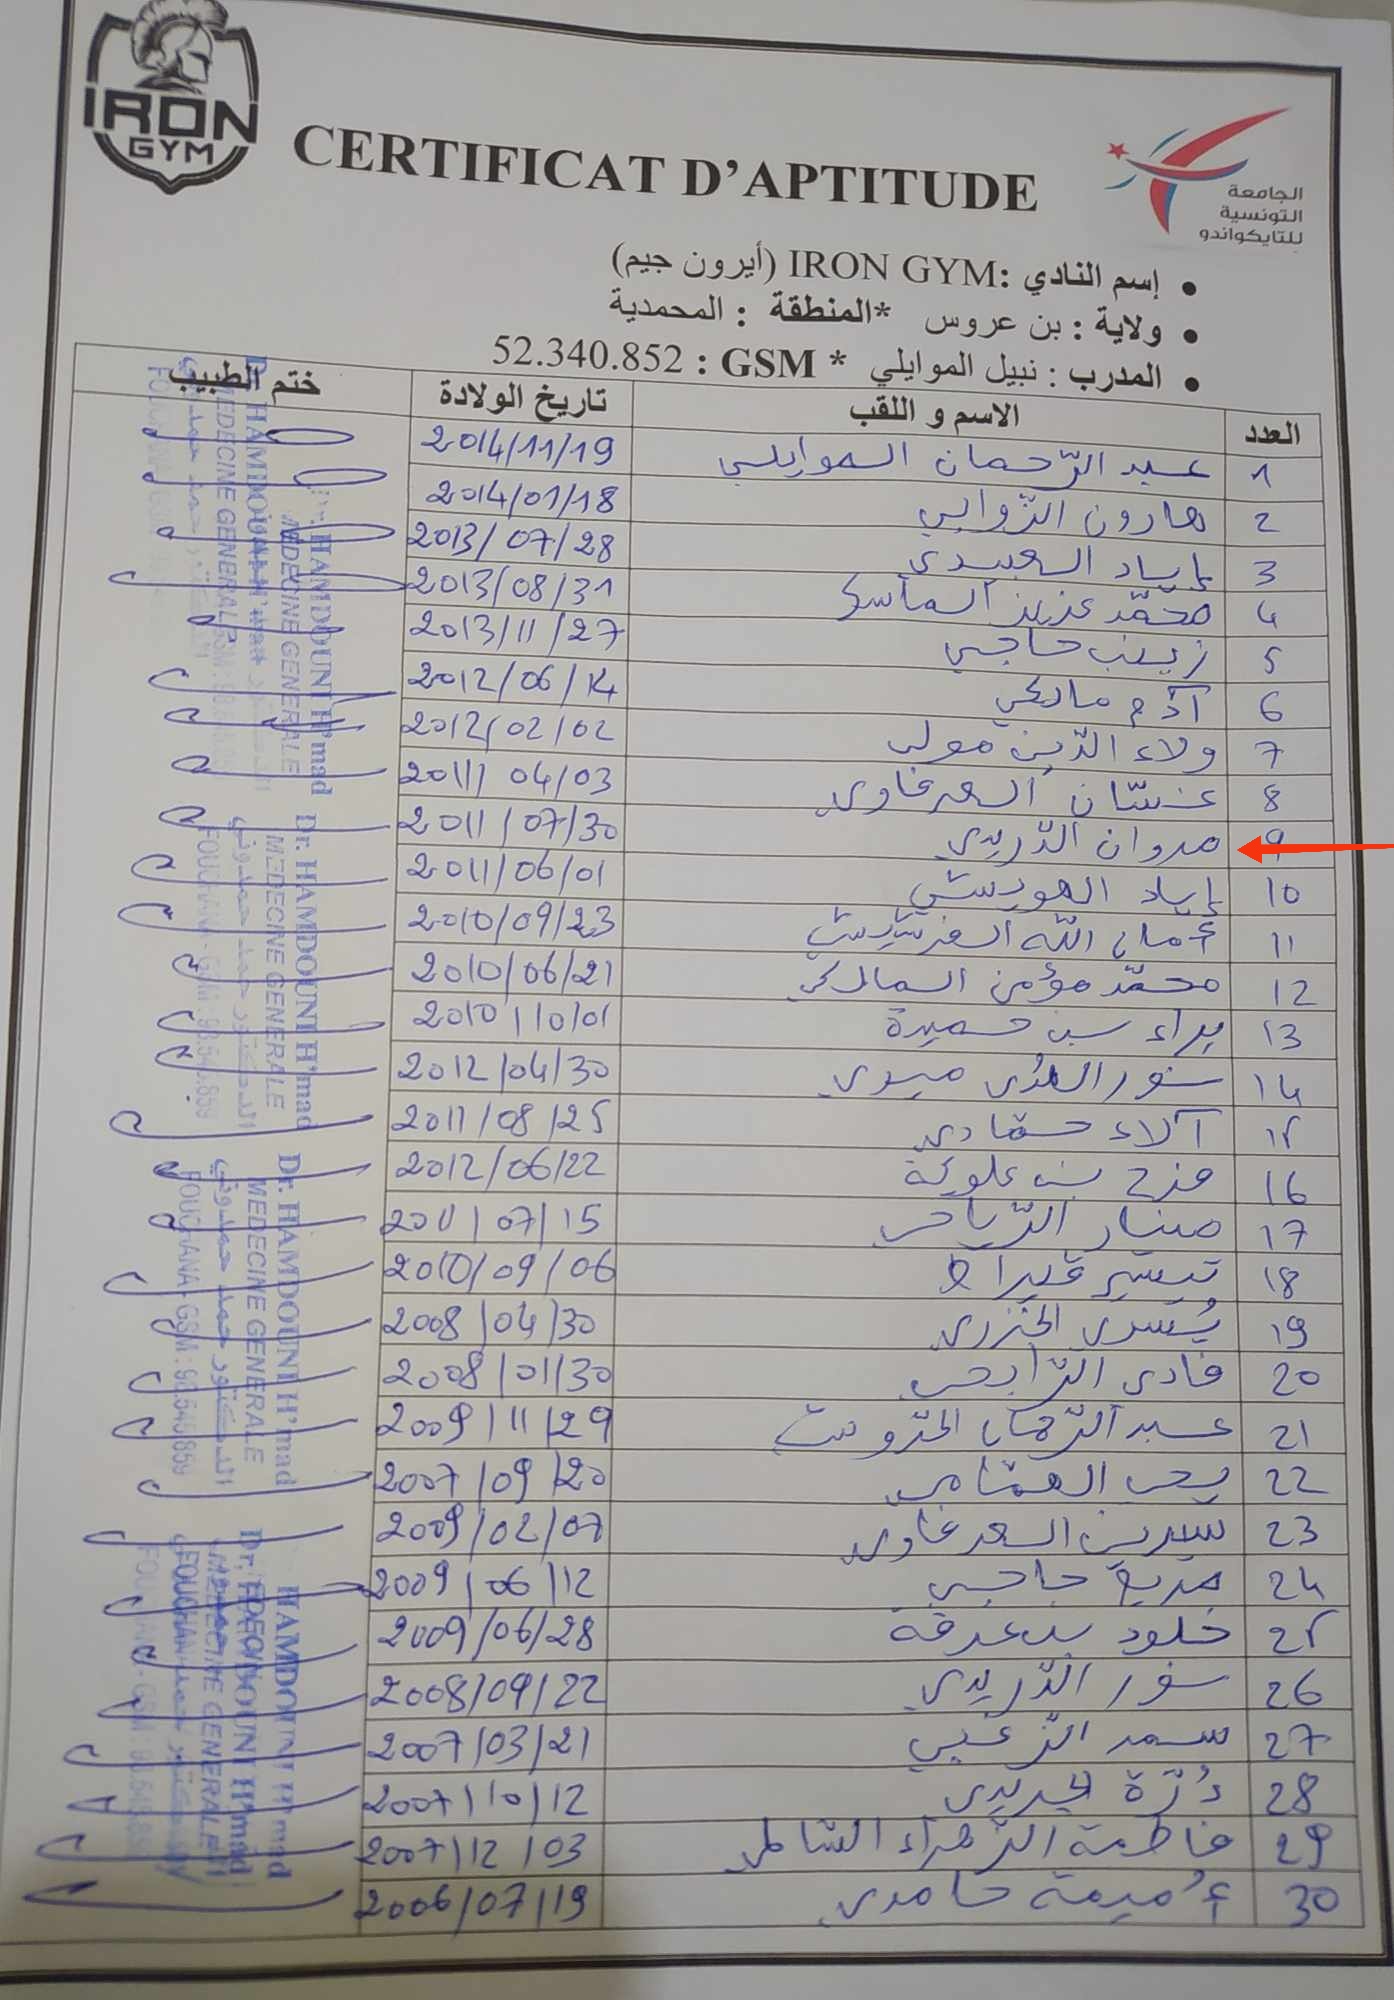 IRON
GYM
CERTIFICAT D'APTITUDE
الجامعة
التونسية
للتايكواندو
• إسم النادي :IRON GYM (أيرون جيم)
• ولاية : بن عروس *المنطقة : المحمدية
• المدرب : نبيل الموايلي * GSM : 52.340.852
العدد الاسم و اللقب تاريخ الولادة ختم الطبيب
1 عبد الرّحمان الموايلي 2014/11/19
2 هارون الزوابي 2014/01/18
3 إياد العبيدي 2013/07/28
4 محمّد عزيز الماسي 2013/08/31
5 زينب حاجي 2013/11/27
6 آدم مالكي 2012/06/14
7 ولاء الدّين مولى 2012/02/02
8 غسّان العرفاوي 2011/04/03
9 مروان الدّريدي 2011/07/30
10 إياد 2011/06/01
11 أمان الله 2010/09/23
12 محمّد مؤمن المالكي 2010/06/21
13 براء بن حميدة 2010/10/01
14 نور الهدى ميدي 2012/04/30
15 آلاء حمّادي 2011/08/25
16 فرح بن علوية 2012/06/22
17 منار الرّياحي 2011/07/15
18 تيسير قيراط 2010/09/06
19 يُسرى الخزري 2008/04/30
20 فادي الرّابحي 2008/01/30
21 عبد الرّحمان 2009/11/29
22 يحي 2007/09/20
23 سيرين العرفاوي 2009/02/07
24 مرية حاجي 2009/06/12
25 خلود بن عرفة 2009/06/28
26 نور الدّريدي 2008/09/22
27 سمر الزّغبي 2007/03/21
28 دُرّة الجريدي 2007/10/12
29 فاطمة الزّهراء الشامي 2007/12/03
30 أُميمة حامدي 2006/07/19
Dr. HAMDOUNI H'mad
MEDECINE GENERALE
الدكتور حمد حمدوني
FOUCHANA - GSM : 98.545.859